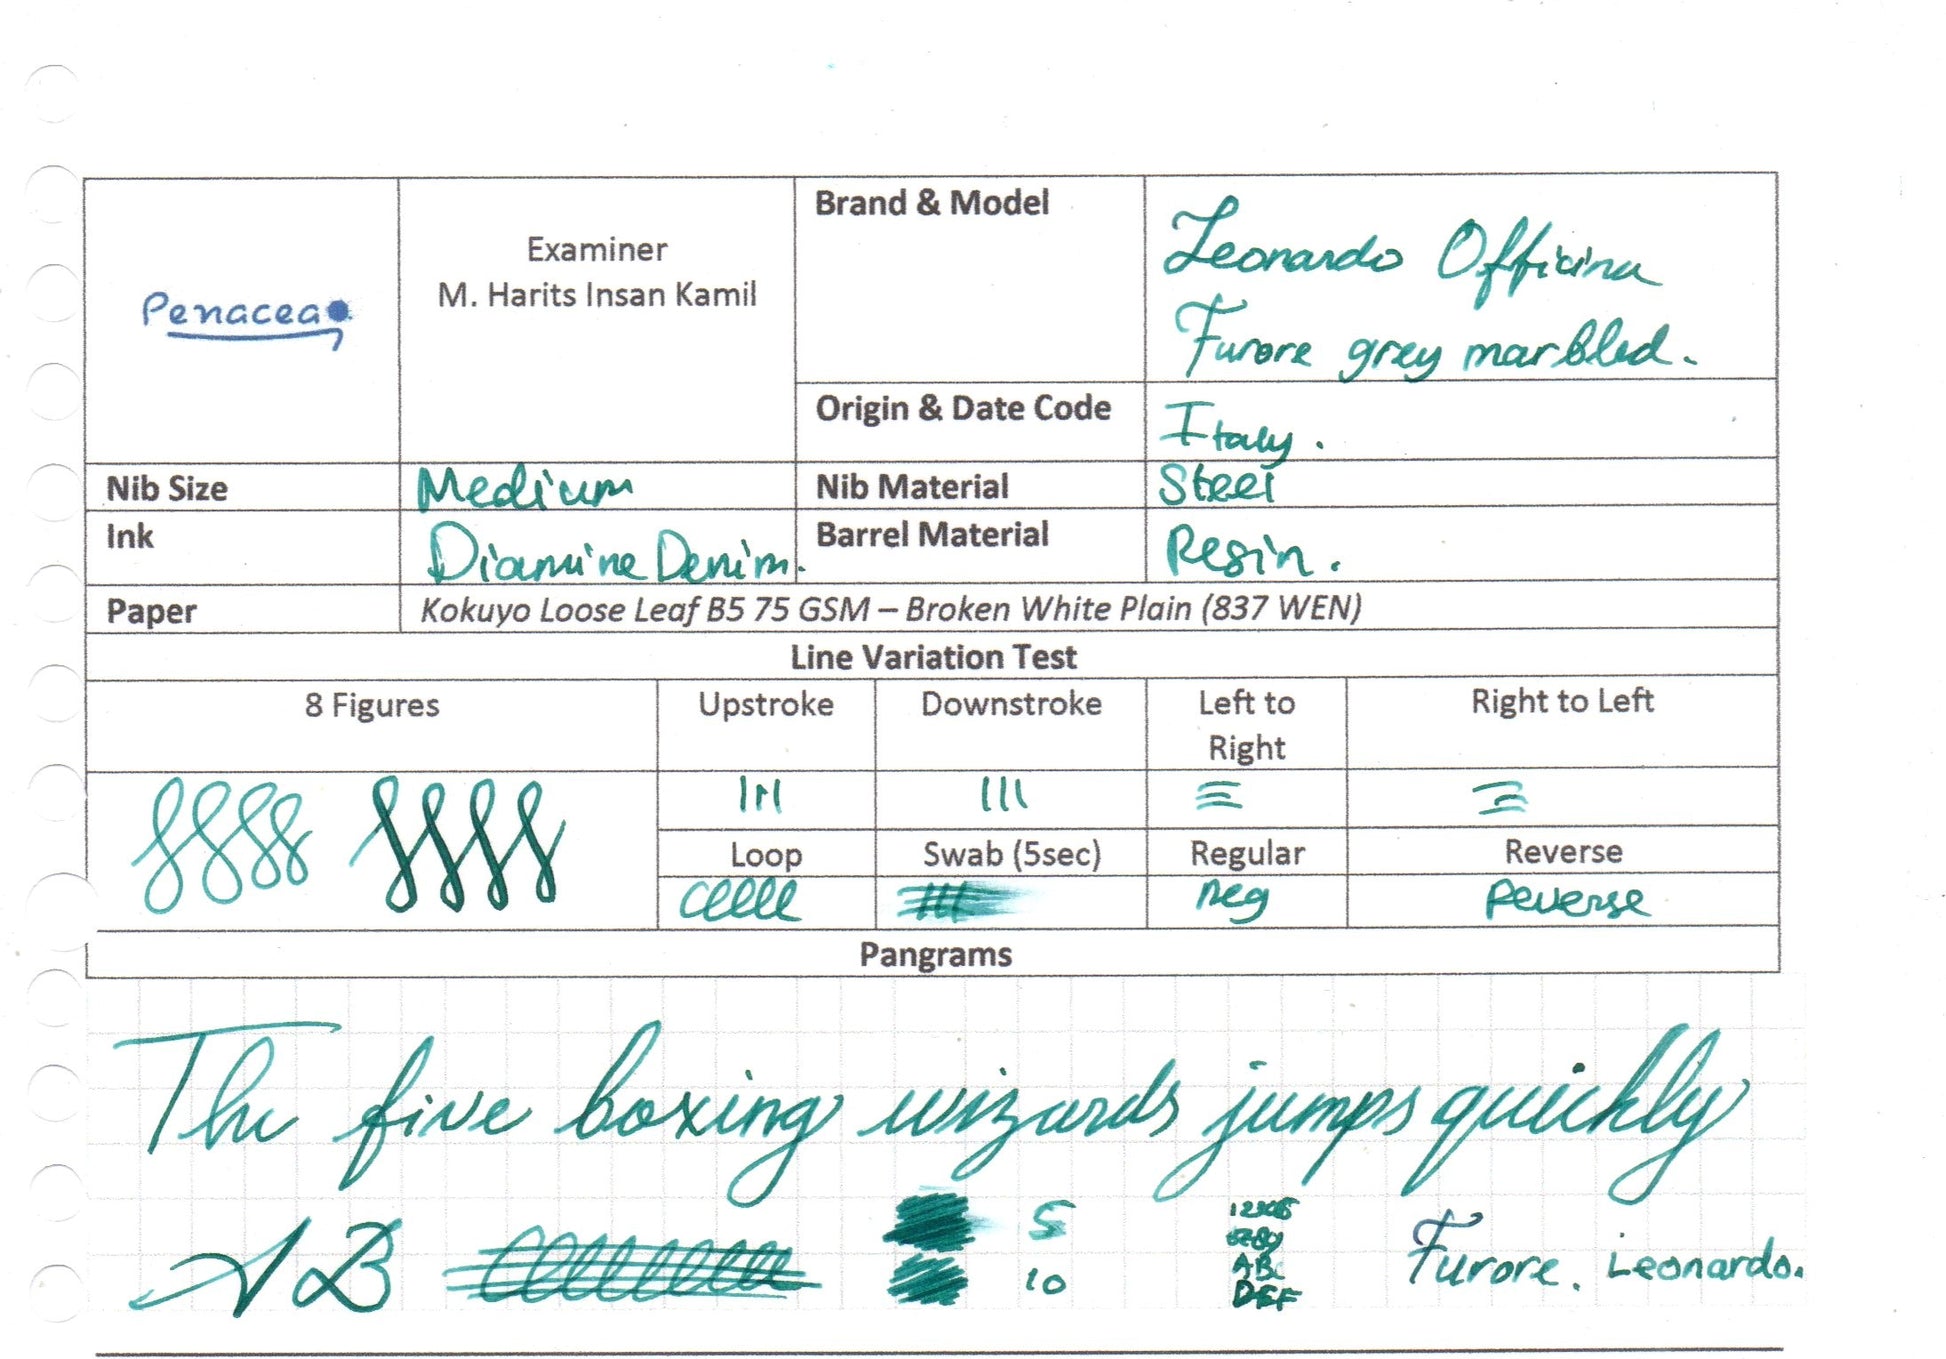 Penacea
Examiner
M. Harits Insan Kamil
Brand & Model
Leonardo Officina
Furore grey marbled.
Origin & Date Code
Italy.
Nib Size
Medium
Nib Material
Steel
Ink
Diamine Denim.
Barrel Material
Resin.
Paper
Kokuyo Loose Leaf B5 75 GSM – Broken White Plain (837 WEN)
Line Variation Test
8 Figures
Upstroke
Downstroke
Left to
Right
Right to Left
Loop
Swab (5sec)
Regular
Reverse
reg
Reverse
Pangrams
The five boxing wizards jumps quickly
A B
5
10
ABC
DEF
Furore. Leonardo.